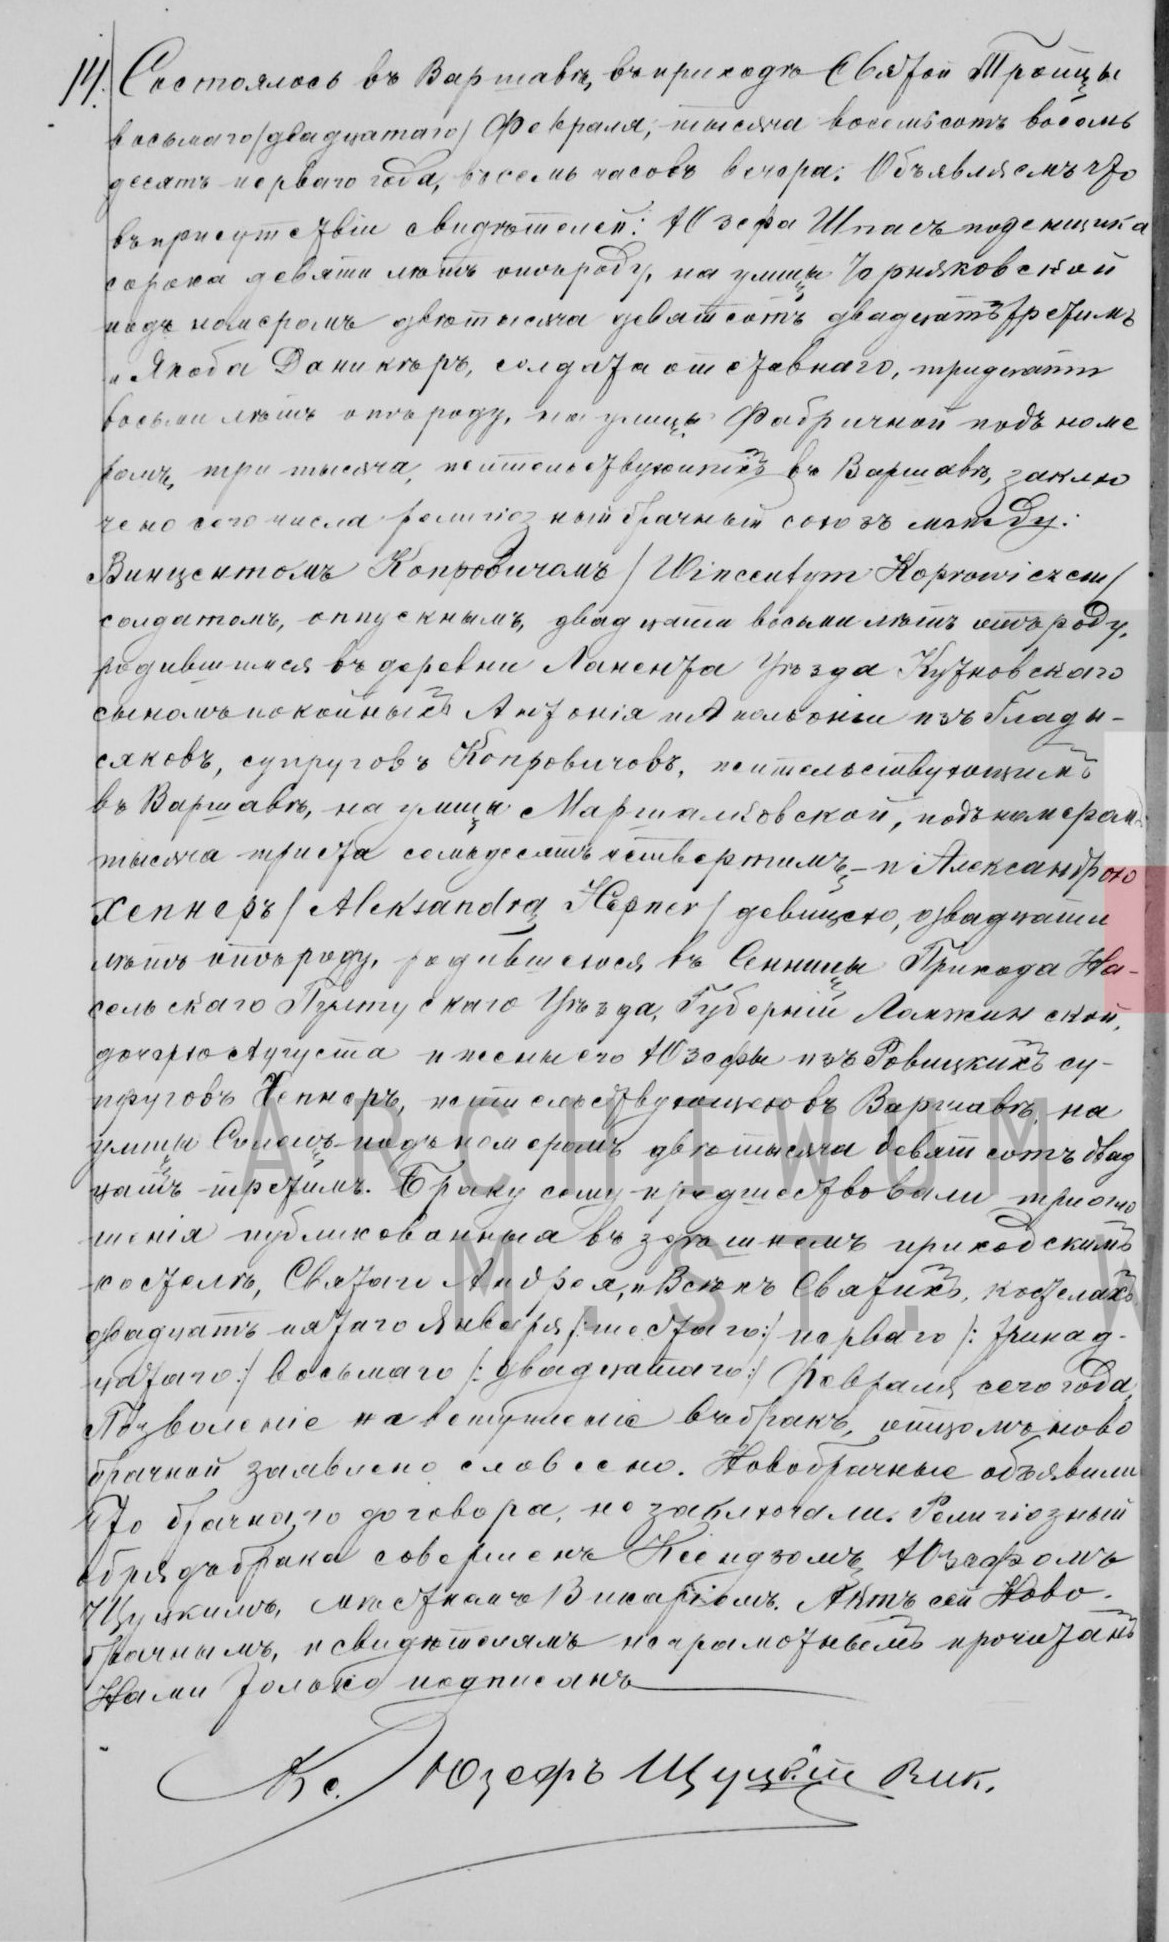 14. Состоялось въ Варшавѣ, въ приходѣ Святой Тройцы
восьмаго /двадцатаго/ Февраля, тысяча восемьсотъ восемь
десятъ перваго года, восемь часовъ вечера. Объявляемъ что
въ присутствіи свидѣтелей: Юзефа Шпасъ поденщика
сорока девяти лѣтъ отъ роду, на улицы Чорняковской
подъ номеромъ двѣ тысяча девятсотъ двадцать третимъ
и Якоба Даникѣръ, солдата отставнаго, тридцати
восьми лѣтъ отъ роду, на улицы Фабричной подъ номе
ромъ, три тысяча, жительствующихъ въ Варшавѣ, заклю
чено сего числа религіозный брачный союзъ между:
Винцентомъ Копровичомъ /Wincentym Koprowiczem/
солдатомъ, отпускнымъ, двадцати восьми лѣтъ отъ роду,
родившимся въ деревни Ланента Уѣзда Кутновскаго
сыномъ покойныхъ Антонія и Аполоніи изъ Глады-
сяковъ, супруговъ Копровичовъ, жительствующимъ
въ Варшавѣ, на улицы Маршалковской, подъ номеромъ
тысяча триста семьдесятъ четвертимъ, – и Александрою
Хепнеръ /Aleksandrą Hepner/ девицею, двадцати
лѣтъ отъ роду, родившеюся въ Сенницы Прихода На-
сельскаго Пултускаго Уѣзда, Губерніи Ломжинской,
дочерю Августа и жены его Юзефы изъ Ровицкихъ су-
пруговъ Хепнеръ, жительствующею въ Варшавѣ, на
улицы Солецъ подъ номеромъ двѣ тысяча девятсотъ двад
цать третимъ. Браку сему предшествовали три огло
шенія публикованныя въ здѣшнемъ приходскимъ
костелѣ, Святаго Андрея, и Всѣхъ Святихъ, костелахъ
двадцать пятаго Января /:шестаго:/ перваго /:тринад-
цатаго:/ восьмаго /:двадцатаго:/ Февраля сего года,
Позволеніе на вступленіе въ бракъ, отцомъ ново
брачной заявлено словесно. Новобрачные объявили
что брачнаго договора, не заключали. Религіозный
обрядъ брака совершенъ Ксендзомъ Юзефомъ
Щуцкимъ, мѣстнамъ Викаріемъ. Актъ сей Ново-
брачнымъ, и свидѣтелямъ неграмотнымъ прочитанъ
Нами только подписанъ
Кс. Юзефъ Щуцкій Вик.
ARCHIWUM
M. ST. W